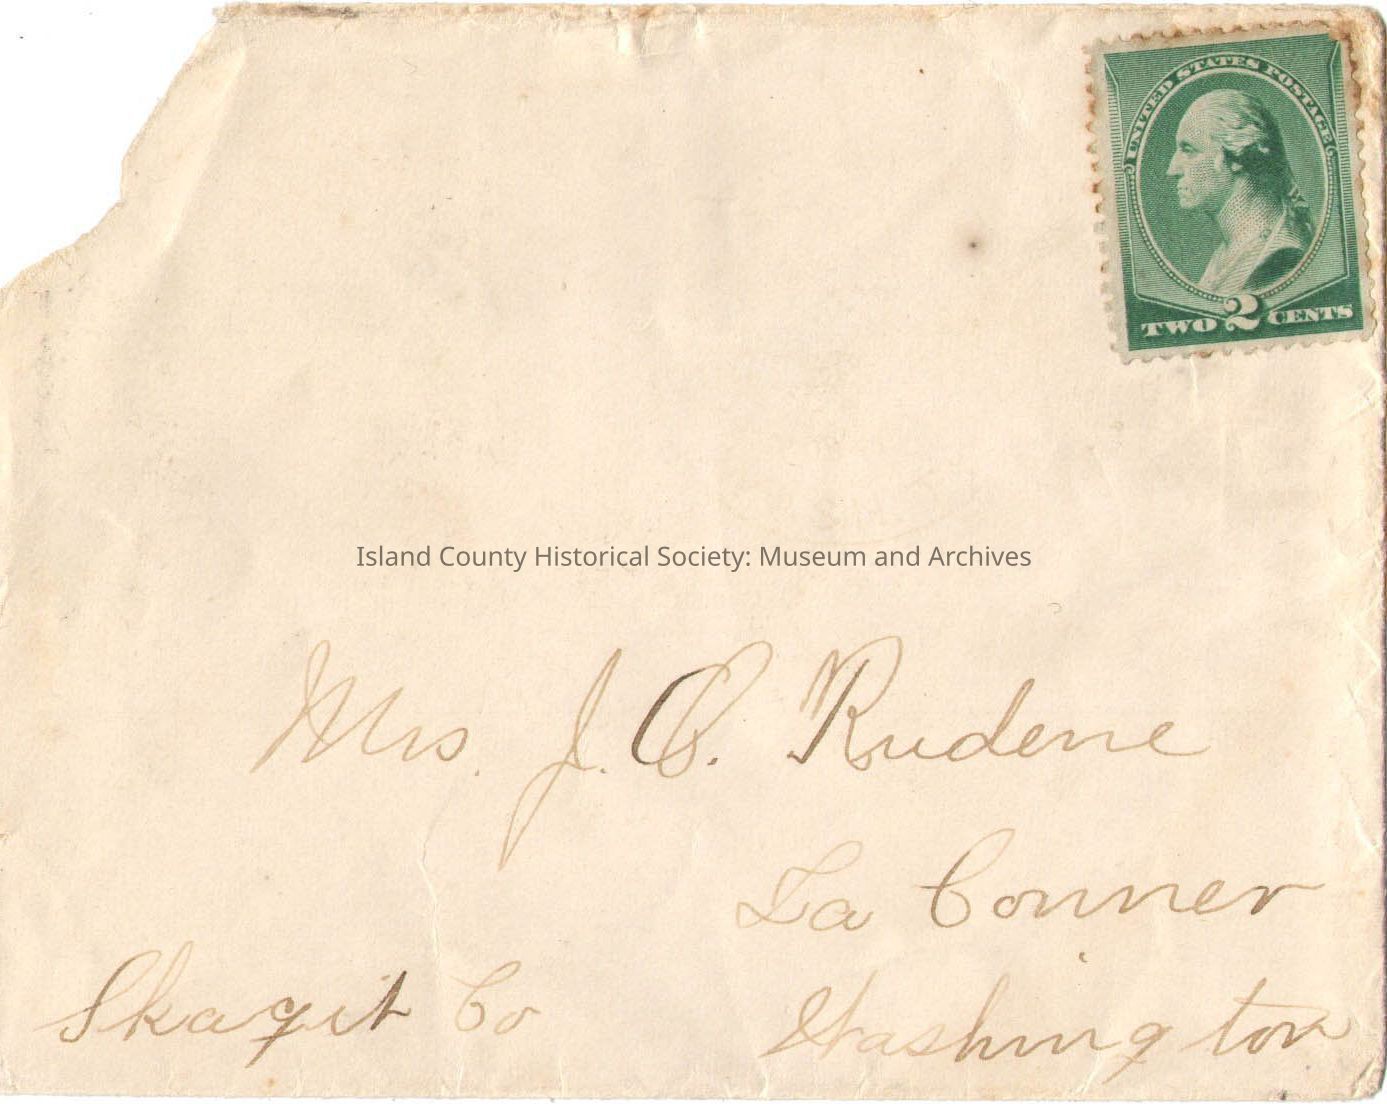 UNITED STATES POSTAGE
TWO 2 CENTS
Island County Historical Society: Museum and Archives
Mrs. J. O. Rudene
La Conner
Skagit Co Washington